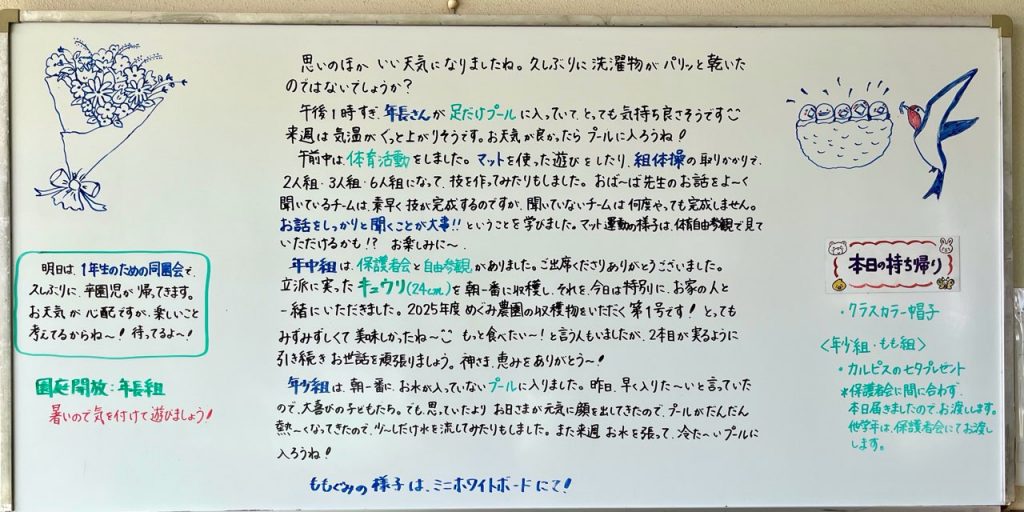 思いのほか いい天気になりましたね。久しぶりに洗濯物がパリッと乾いた
のではないでしょうか?
午後1時すぎ、年長さんが足だけプールに入っていて、とっても気持ち良さそうです
来週は気温がぐっと上がりそうです。お天気が良かったらプールに入ろうね!
午前中は体育活動をしました。マットを使った遊びをしたり、組体操の取りかかりで、
2人組・3人組・6人組になって、技を作ってみたりもしました。おば〜ば先生のお話をよ〜く
聞いているチームは素早く技が完成するのですが、聞いていないチームは何度やっても完成しません。
お話をしっかりと聞くことが大事!!ということを学びました。マット運動の様子は、体育自由参観で見て
いただけるかも!? お楽しみに〜。
年中組は、保護者会と自由参観がありました。ご出席くださりありがとうございました。
立派に実ったキュウリ(24cm)を朝一番に収穫し、それを、今日は特別に、お家の人と
一緒にいただきました。2025年度めぐみ農園の収穫物をいただく第1号です!とっても
みずみずしくて美味しかったね〜 もっと食べたい〜!と言う人もいましたが、2本目が実るように
引き続きお世話を頑張りましょう。神さま、恵みをありがとう〜!
年少組は、朝一番に、お水が入っていないプールに入りました。昨日、早く入りた〜いと言っていた
ので、大喜びの子どもたち。でも、思っていたよりお日さまが元気に顔を出してきたので、プールがだんだん
熱〜くなってきたので、少〜しだけ水を流してみたりもしました。また来週お水を張って、冷た〜いプールに
入ろうね!
ももぐみの様子は、ミニホワイトボードにて!
明日は、1年生のための同園会で、
久しぶりに、卒園児が帰ってきます。
お天気が心配ですが、楽しいこと
考えてるからね〜!待ってるよ〜!
園庭開放:年長組
暑いので気を付けて遊びましょう!
本日の持ち帰り
・クラスカラー帽子
〈年少組・もも組〉
・カルピスの七夕プレゼント
*保護者会に間に合わず、
本日届きましたので、お渡しします。
他学年は、保護者会にてお渡し
します。